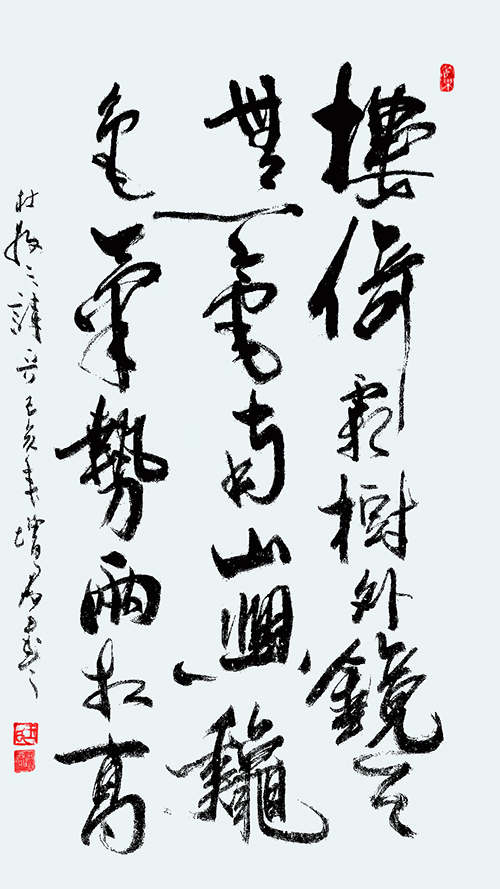 樓倚霜樹外鏡天
無一毫南山與龝
色氣勢兩相高
杜牧之詩己亥年增